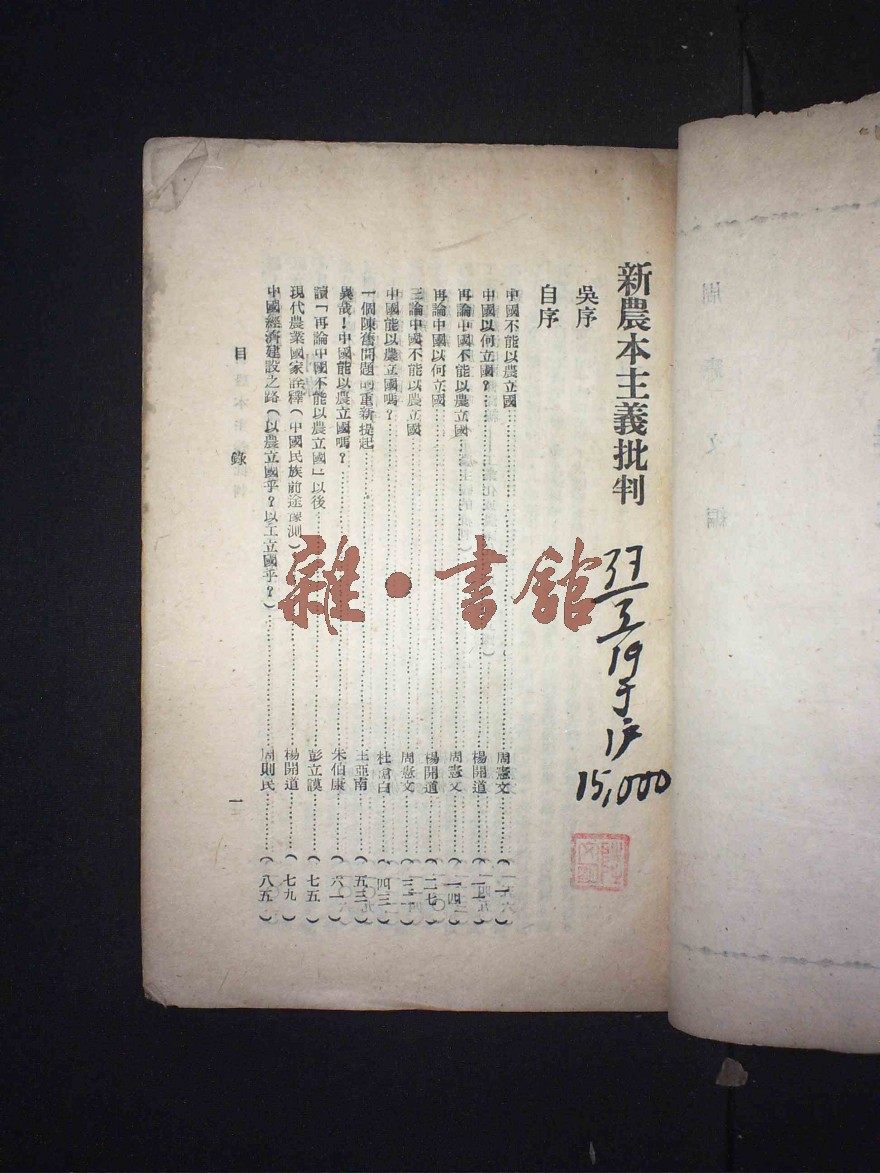 新農本主義批判
吳序
自序
中國不能以農立國……周憲文……(一)
中國以何立國?……楊開道……(一一)
再論中國不能以農立國……周憲文……(一四)
再論中國以何立國……楊開道……(二七)
三論中國不能以農立國……周憲文……(三一)
中國能以農立國嗎?……杜滄白……(四三)
一個陳舊問題的重新提起……王亞南……(五三)
異哉!中國能以農立國嗎?……朱伯康……(六一)
讀「再論中國不能以農立國」以後……彭立謨……(七五)
現代農業國家詮釋(中國民族前途豫測)……楊開道……(七九)
中國經濟建設之路(以農立國乎?以工立國乎?)……周則民……(八五)
目錄
一
19于滬
15,000
雜·書館
周憲文編